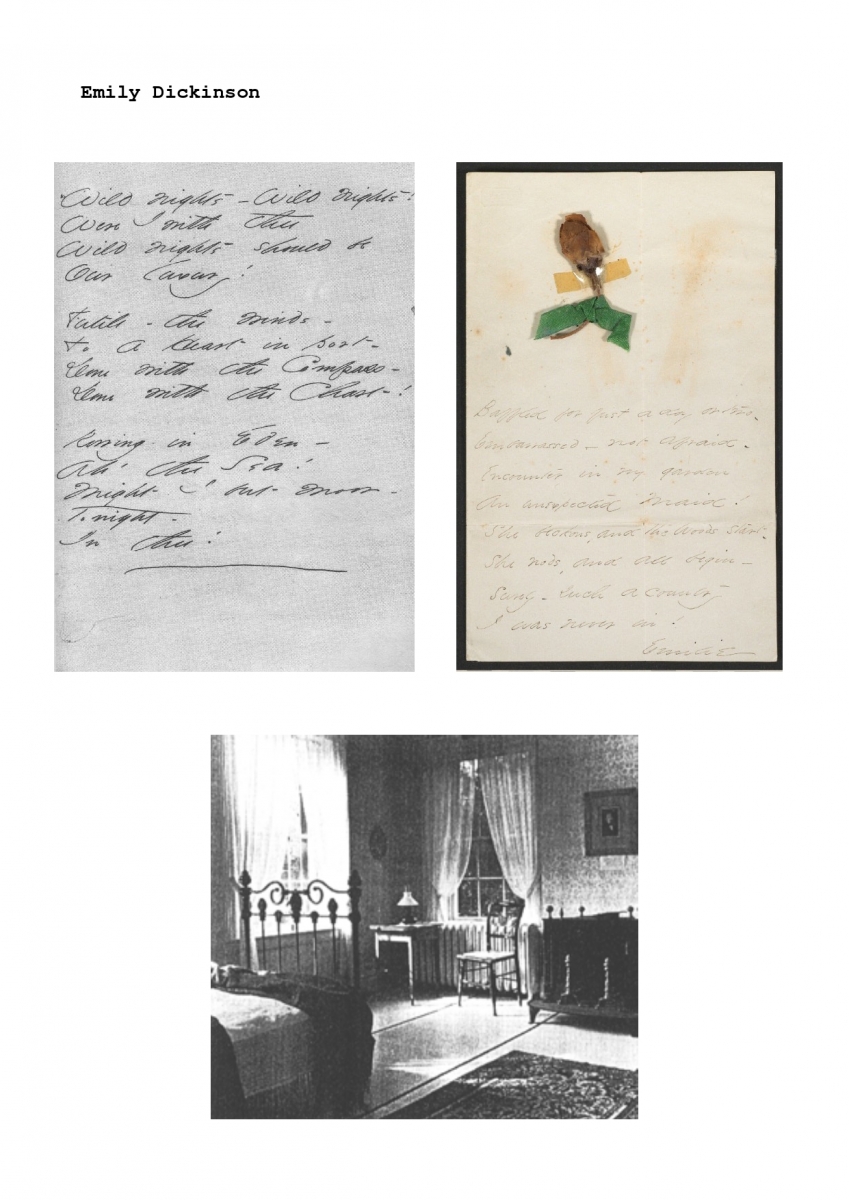 Emily Dickinson
Wild nights - Wild nights!
Were I with thee
Wild nights should be
Our luxury!
Futile - the winds -
To a Heart in port -
Done with the Compass -
Done with the Chart -!
Rowing in Eden -
Ah! the Sea!
Might I but moor -
Tonight -
In thee!
Baffled for just a day or two -
Embarrassed - not afraid -
Encounter in my garden
An unexpected Maid!
She beckons, and the woods start -
She nods, and all begin -
Surely - such a country
I was never in!
Emilie